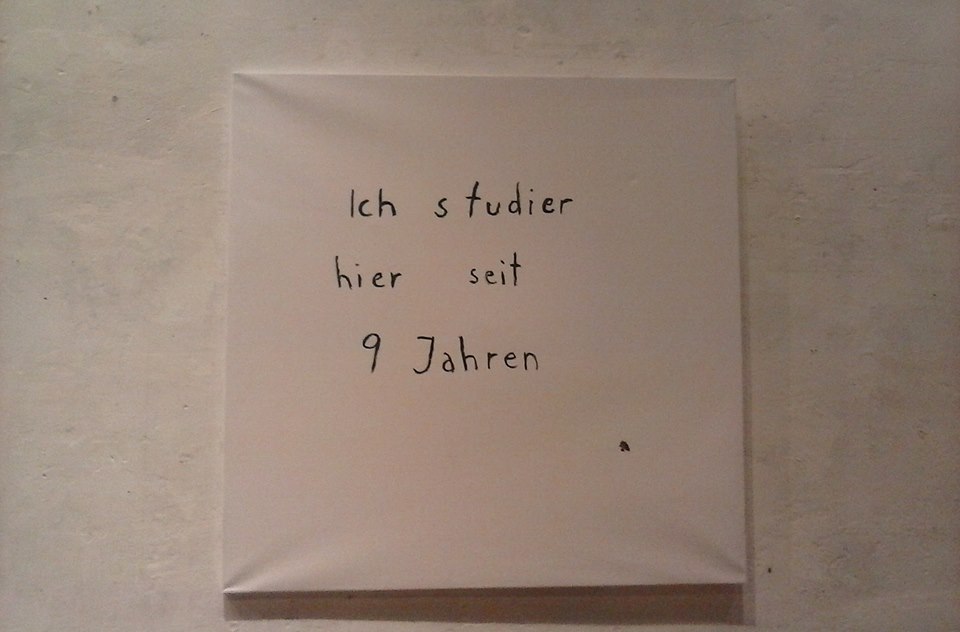 Ich studier
hier seit
9 Jahren